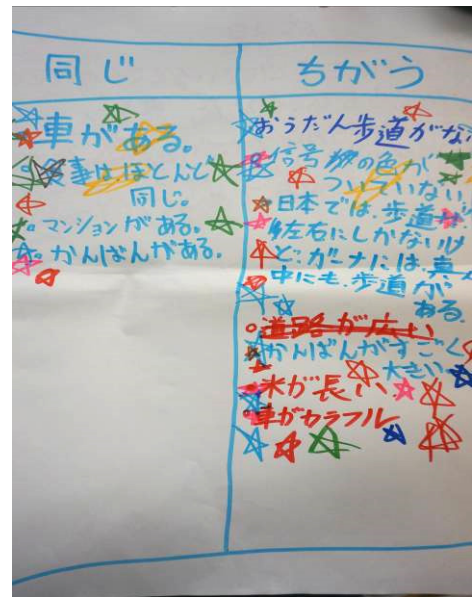 同じ
車がある。
食事はほとんど
同じ。
マンションがある。
かんばんがある。
ちがう
おうだん歩道がな
信号 の色が
ついていない
日本では、歩道が、
左右にしかないけ
ど、ガーナには、真
中にも、歩道が
ある。
道路が広い
かんばんがすごく
大きい
木が長い
車がカラフル